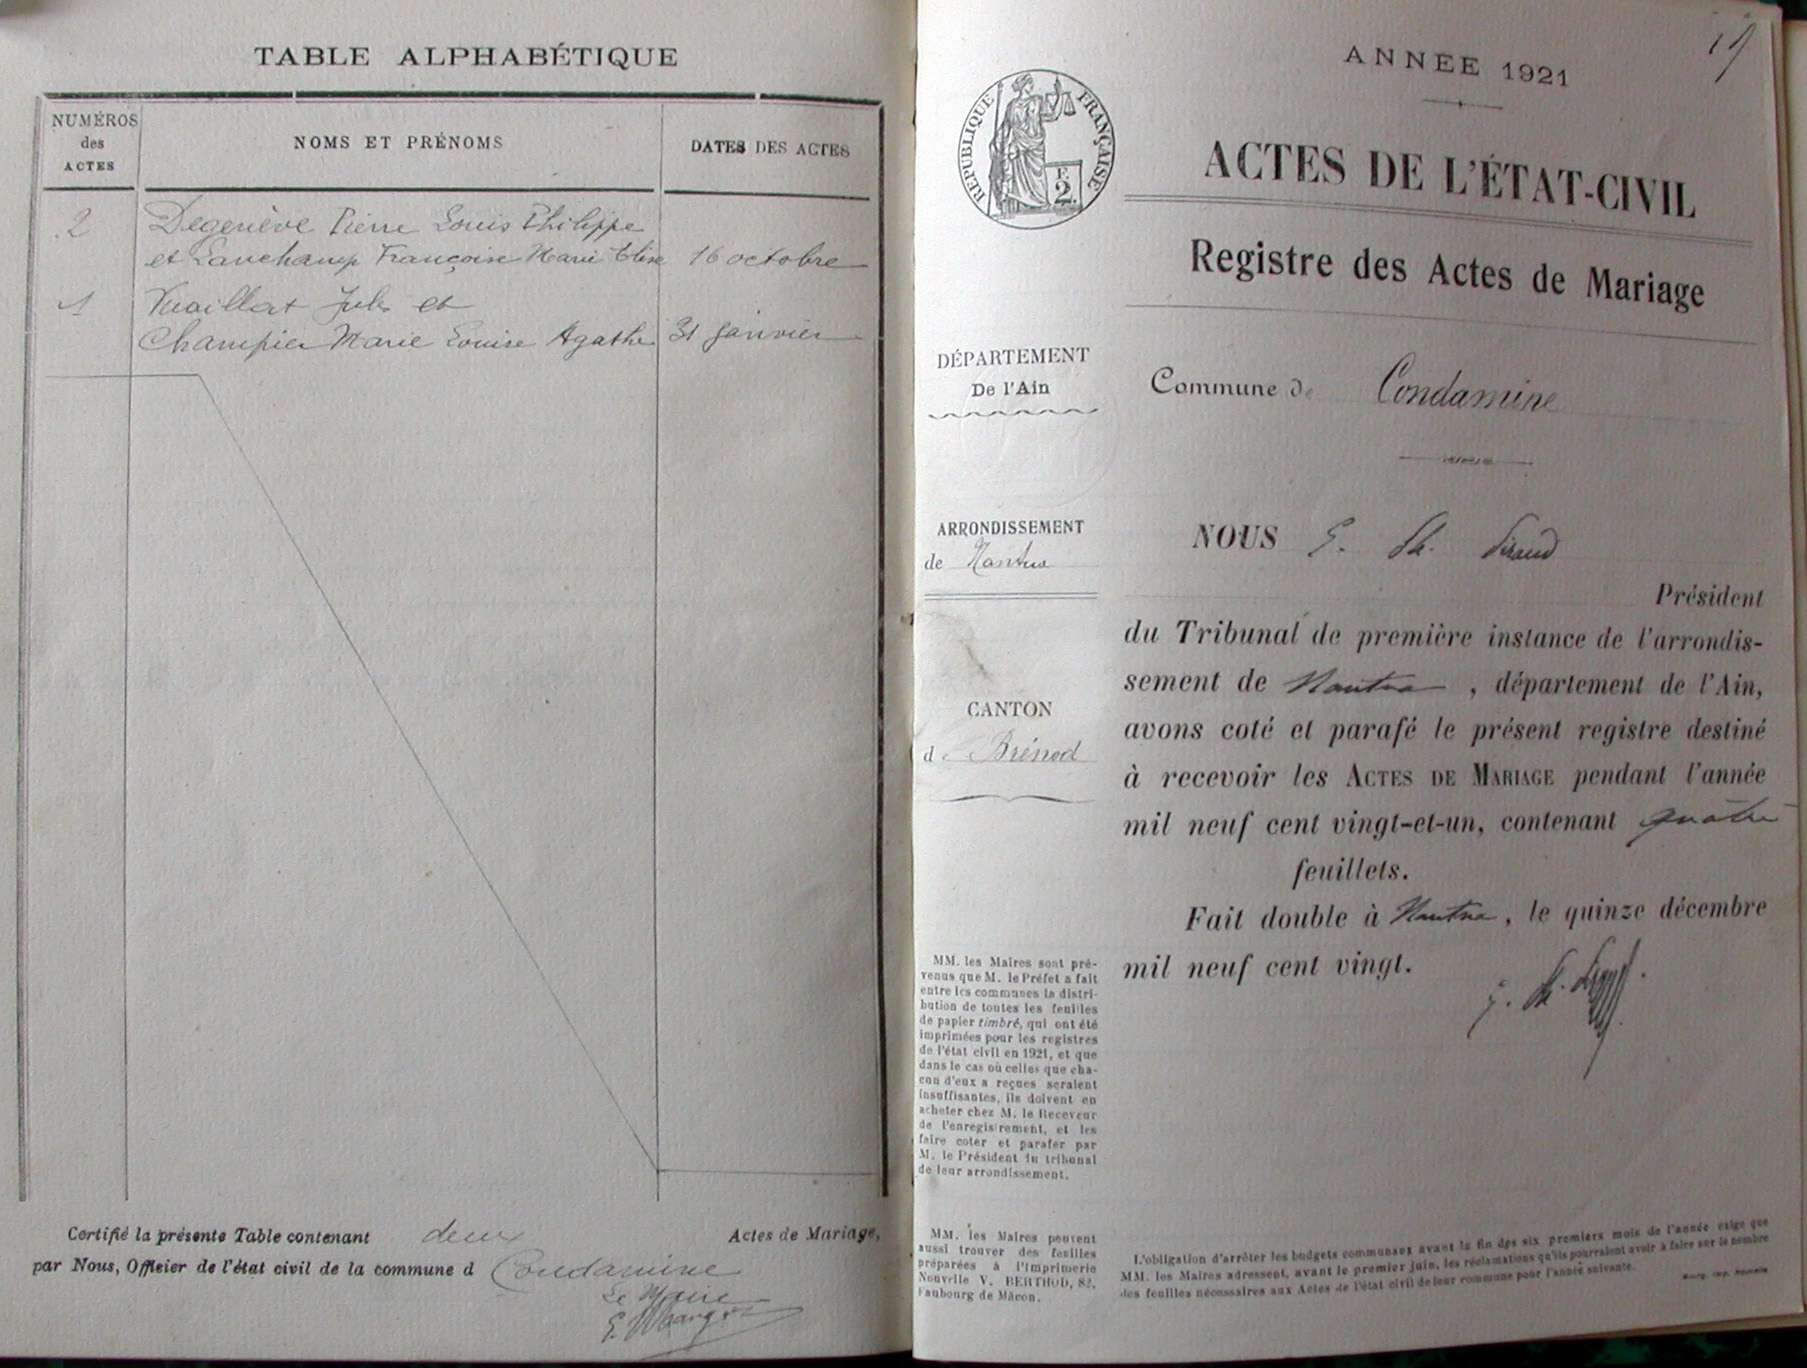 TABLE ALPHABÉTIQUE
NUMÉROS
des
ACTES
NOMS ET PRÉNOMS
DATES DES ACTES
2
Degenève Pierre Louis Philippe
et Lanchamp Françoise Marie Elise 16 octobre
1
Vuaillat Jules et
Champier Marie Louise Agathe 31 janvier
Certifié la présente Table contenant deux Actes de Mariage,
par Nous, Officier de l'état civil de la commune d Condamine
Le Maire
19
ANNÉE 1921
RÉPUBLIQUE FRANÇAISE
F.
2.
ACTES DE L'ÉTAT-CIVIL
Registre des Actes de Mariage
DÉPARTEMENT
De l'Ain
Commune de Condamine
ARRONDISSEMENT
de Nantua
CANTON
d Brénod
NOUS
Président
du Tribunal de première instance de l'arrondis-
sement de Nantua, département de l'Ain,
avons coté et parafé le présent registre destiné
à recevoir les ACTES DE MARIAGE pendant l'année
mil neuf cent vingt-et-un, contenant quatre
feuillets.
Fait double à Nantua, le quinze décembre
mil neuf cent vingt.
MM. les Maires sont pré-
venus que M. le Préfet a fait
entre les communes la distri-
bution de toutes les feuilles
de papier timbré, qui ont été
imprimées pour les registres
de l'état civil en 1921, et que
dans le cas où celles que cha-
cun d'eux a reçues seraient
insuffisantes, ils doivent en
acheter chez M. le Receveur
de l'enregistrement, et les
faire coter et parafer par
M. le Président du tribunal
de leur arrondissement.
MM. les Maires peuvent
aussi trouver des feuilles
préparées à l'Imprimerie
Nouvelle V. BERTHOD, 82,
Faubourg de Mâcon.
L'obligation d'arrêter les budgets communaux avant la fin des six premiers mois de l'année exige que
MM. les Maires adressent, avant le premier juin, les réclamations qu'ils pourraient avoir à faire sur le nombre
des feuilles nécessaires aux Actes de l'état civil de leur commune pour l'année suivante.